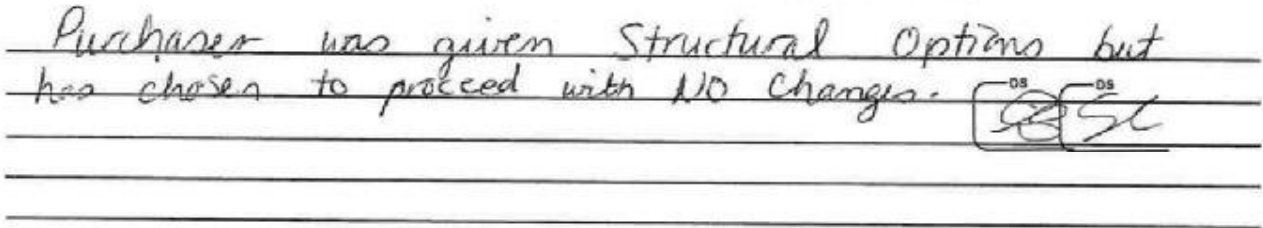 Purchaser was given Structural Options but
has chosen to proceed with NO Changes.
DS DS
SC